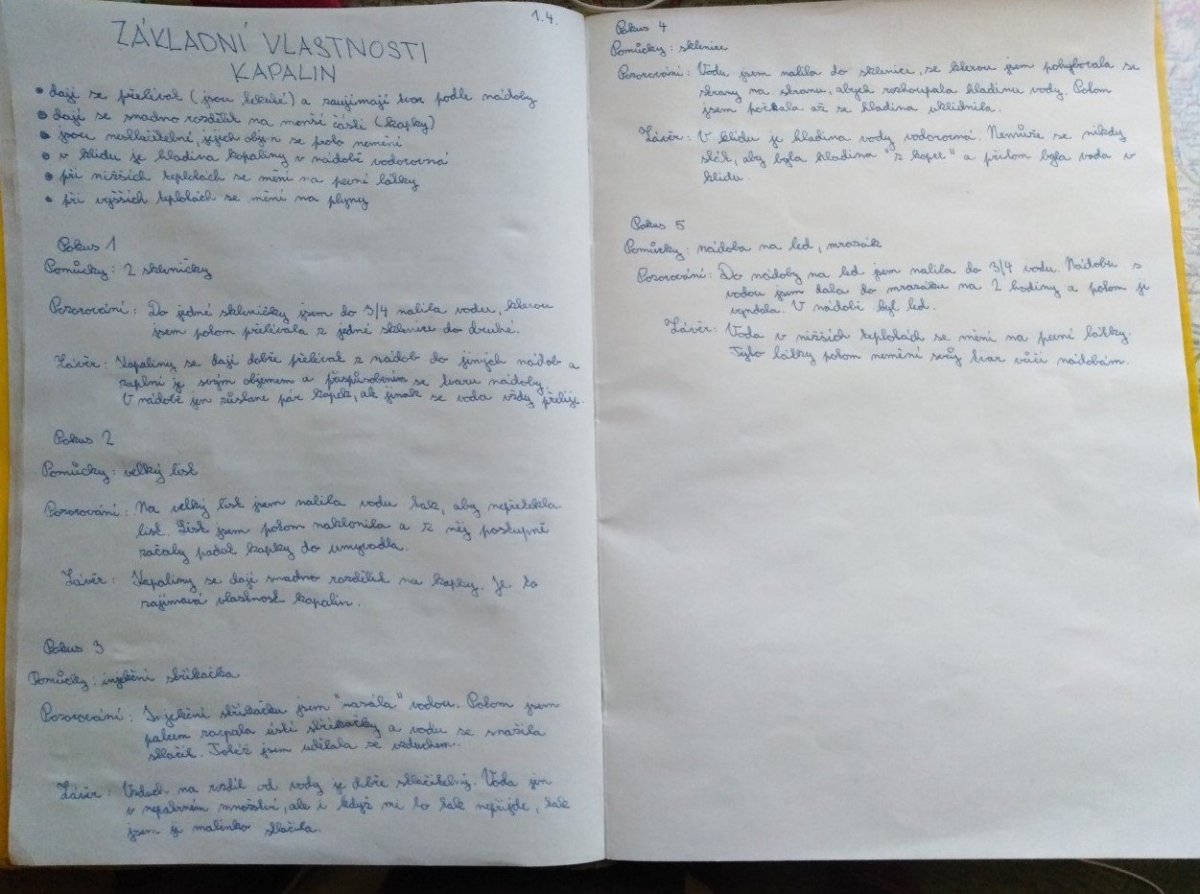 1.4.
ZÁKLADNÍ VLASTNOSTI
KAPALIN
• dají se přelívat (jsou tekuté) a zaujímají tvar podle nádoby
• dají se snadno rozdělit na menší části (kapky)
• jsou nestlačitelné, jejich objem se proto nemění
• v klidu je hladina kapaliny v nádobě vodorovná
• při nižších teplotách se mění na pevné látky
• při vyšších teplotách se mění na plyny
Pokus 1
Pomůcky: 2 skleničky
Pozorování: Do jedné skleničky jsem do 3/4 nalila vodu, kterou
jsem potom přelívala z jedné sklenice do druhé.
Závěr: Kapaliny se dají dobře přelívat z nádob do jiných nádob a
zaplní je svým objemem a přizpůsobením se tvaru nádoby.
V nádobě jen zůstane pár kapek, ale jinak se voda vždy přelije.
Pokus 2
Pomůcky: velký list
Pozorování: Na velký list jsem nalila vodu tak, aby nepřetekla
list. List jsem potom naklonila a z něj postupně
začaly padat kapky do umyvadla.
Závěr: Kapaliny se dají snadno rozdělit na kapky. Je to
zajímavá vlastnost kapalin.
Pokus 3
Pomůcky: injekční stříkačka
Pozorování: Injekční stříkačku jsem "nasála" vodou. Potom jsem
palcem zacpala ústí stříkačky a vodu se snažila
stlačit. Totéž jsem udělala se vzduchem.
Závěr: Vzduch na rozdíl od vody je dobře stlačitelný. Voda jen
v nepatrném množství, ale i když mi to tak nepřijde, tak
jsem ji malinko stlačila.
Pokus 4
Pomůcky: sklenice
Pozorování: Vodu jsem nalila do sklenice, se kterou jsem pohybovala ze
strany na stranu, abych rozhoupala hladinu vody. Potom
jsem počkala až se hladina uklidnila.
Závěr: V klidu je hladina vody vodorovná. Nemůže se nikdy
stát, aby byla hladina "z kopce" a přitom byla voda v
klidu.
Pokus 5
Pomůcky: nádoba na led, mrazák
Pozorování: Do nádoby na led jsem nalila do 3/4 vodu. Nádobu s
vodou jsem dala do mrazáku na 2 hodiny a potom ji
vyndala. V nádobě byl led.
Závěr: Voda v nižších teplotách se mění na pevné látky.
Tyto látky potom nemění svůj tvar vůči nádobám.